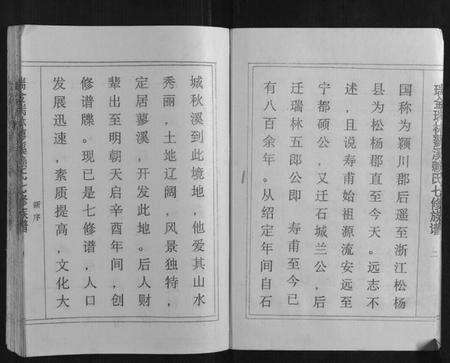 国称为颍川郡后遥至浙江松杨
县为松杨郡直至今天。远志不
述，且说寿甫始祖源流安远至
宁都硕公，又迁石城兰公，后
迁瑞林五郎公即　寿甫至今已
有八百余年。从绍定年间自石
二
城秋溪到此境地，他爱其山水
秀丽，土地辽阔，风景独特，
定居蓼溪，开发此地。后人财
辈出至明朝天启辛酉年间，创
修谱牒。现已是七修谱，人口
发展迅速，素质提高，文化大
新序